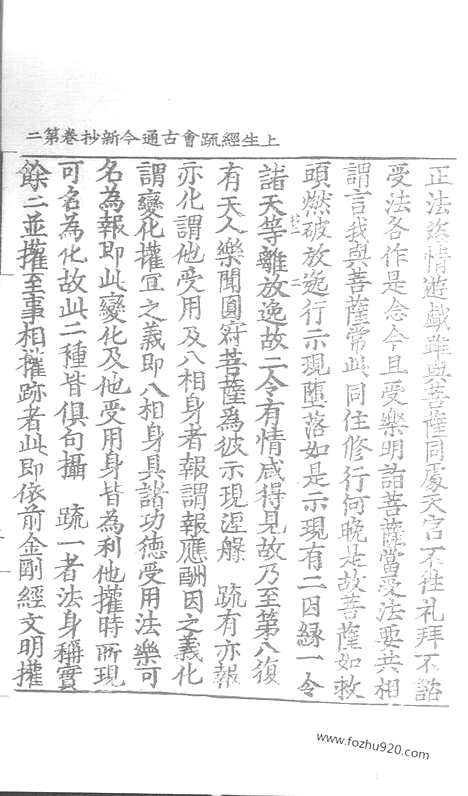 上生經䟽會古通今新抄卷第二
正法恣情遊戲雖與菩薩同處天宮不往礼拜不諮
受法各作是念今且受樂明詣菩薩當受法要共相
謂言我與菩薩常此同住修行何晚是故菩薩如救
頭燃破放逸行示現墮落如是示現有二因緣一令
諸天等離放逸故二令有情咸得見故乃至第八復
有天人樂聞圓寂菩薩爲彼示現涅槃 䟽有亦報
亦化謂他受用及八相身者報謂報應酬因之義化
謂變化權宜之義即八相身具諸功德受用法樂可
名為報即此變化及他受用身皆為利他權時所現
可名為化故此二種皆俱句攝 䟽一者法身稱實
餘二並權至事相權跡者此即依前金剛經文明權
www.fozhu920.com